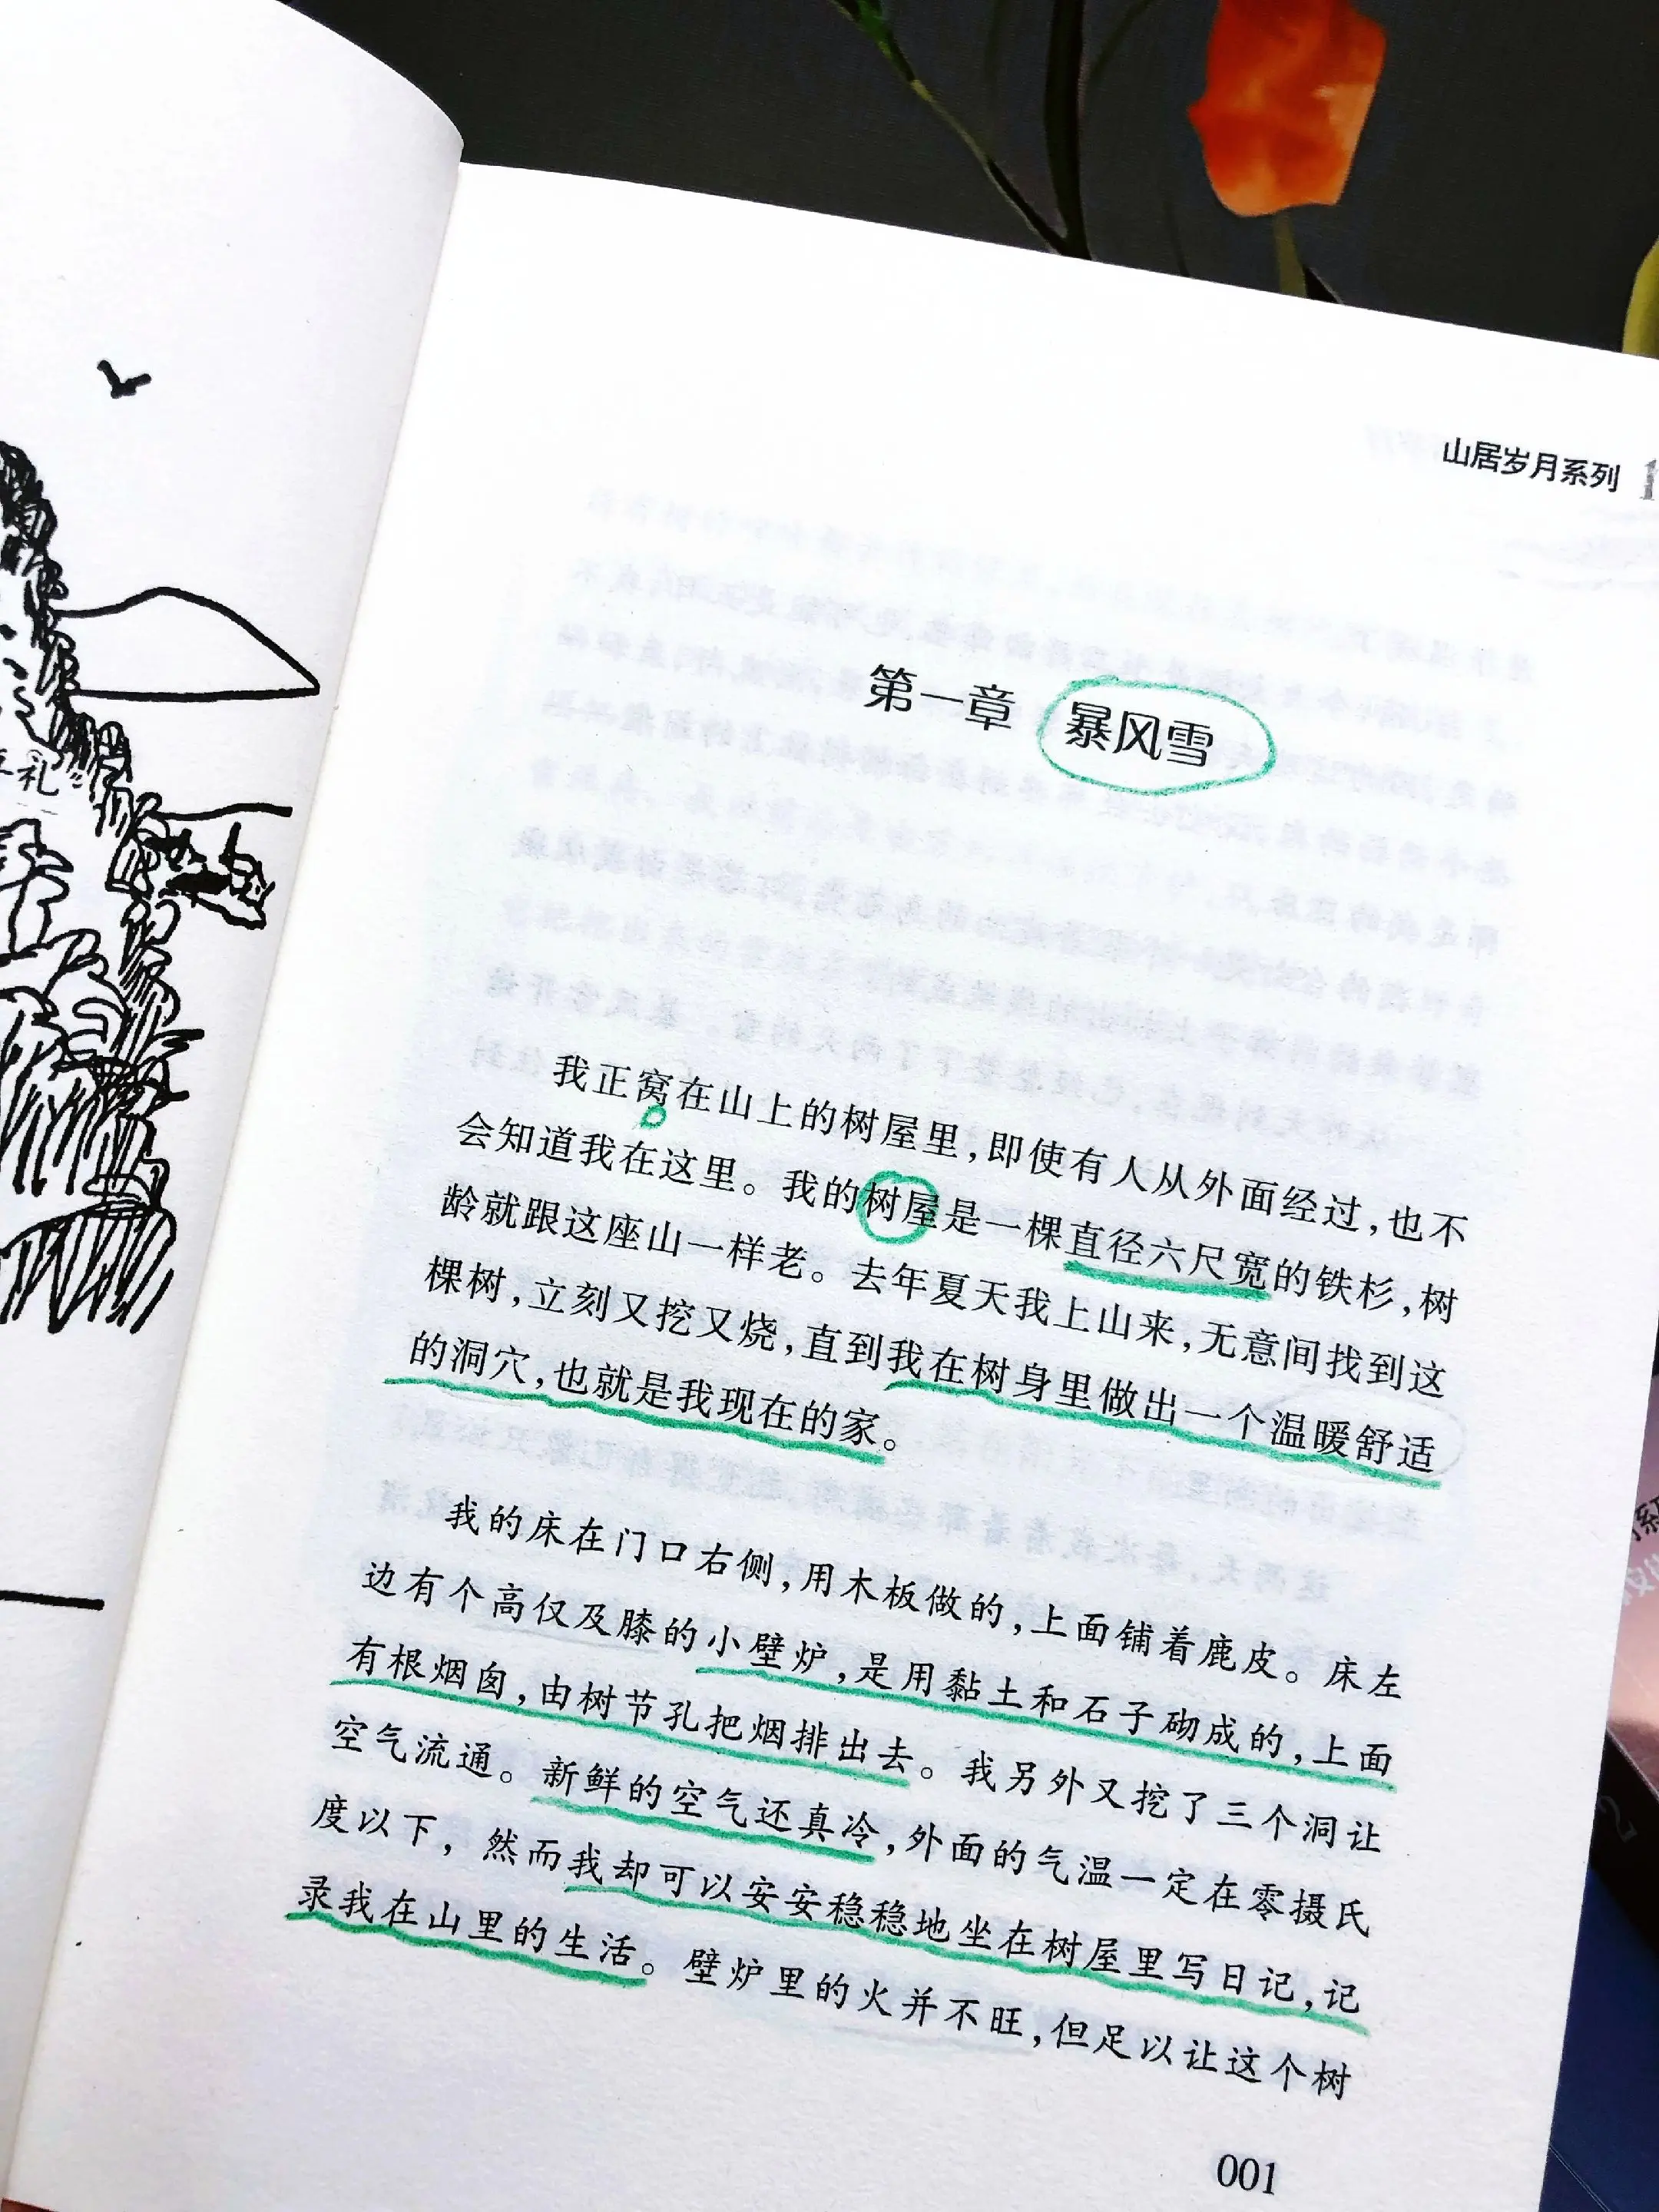 礼
山居岁月系列
第一章 暴风雪
我正窝在山上的树屋里，即使有人从外面经过，也不
会知道我在这里。我的树屋是一棵直径六尺宽的铁杉，树
龄就跟这座山一样老。去年夏天我上山来，无意间找到这
棵树，立刻又挖又烧，直到我在树身里做出一个温暖舒适
的洞穴，也就是我现在的家。
我的床在门口右侧，用木板做的，上面铺着鹿皮。床左
边有个高仅及膝的小壁炉，是用黏土和石子砌成的，上面
有根烟囱，由树节孔把烟排出去。我另外又挖了三个洞让
空气流通。新鲜的空气还真冷，外面的气温一定在零摄氏
度以下，然而我却可以安安稳稳地坐在树屋里写日记，记
录我在山里的生活。壁炉里的火并不旺，但足以让这个树
001
2